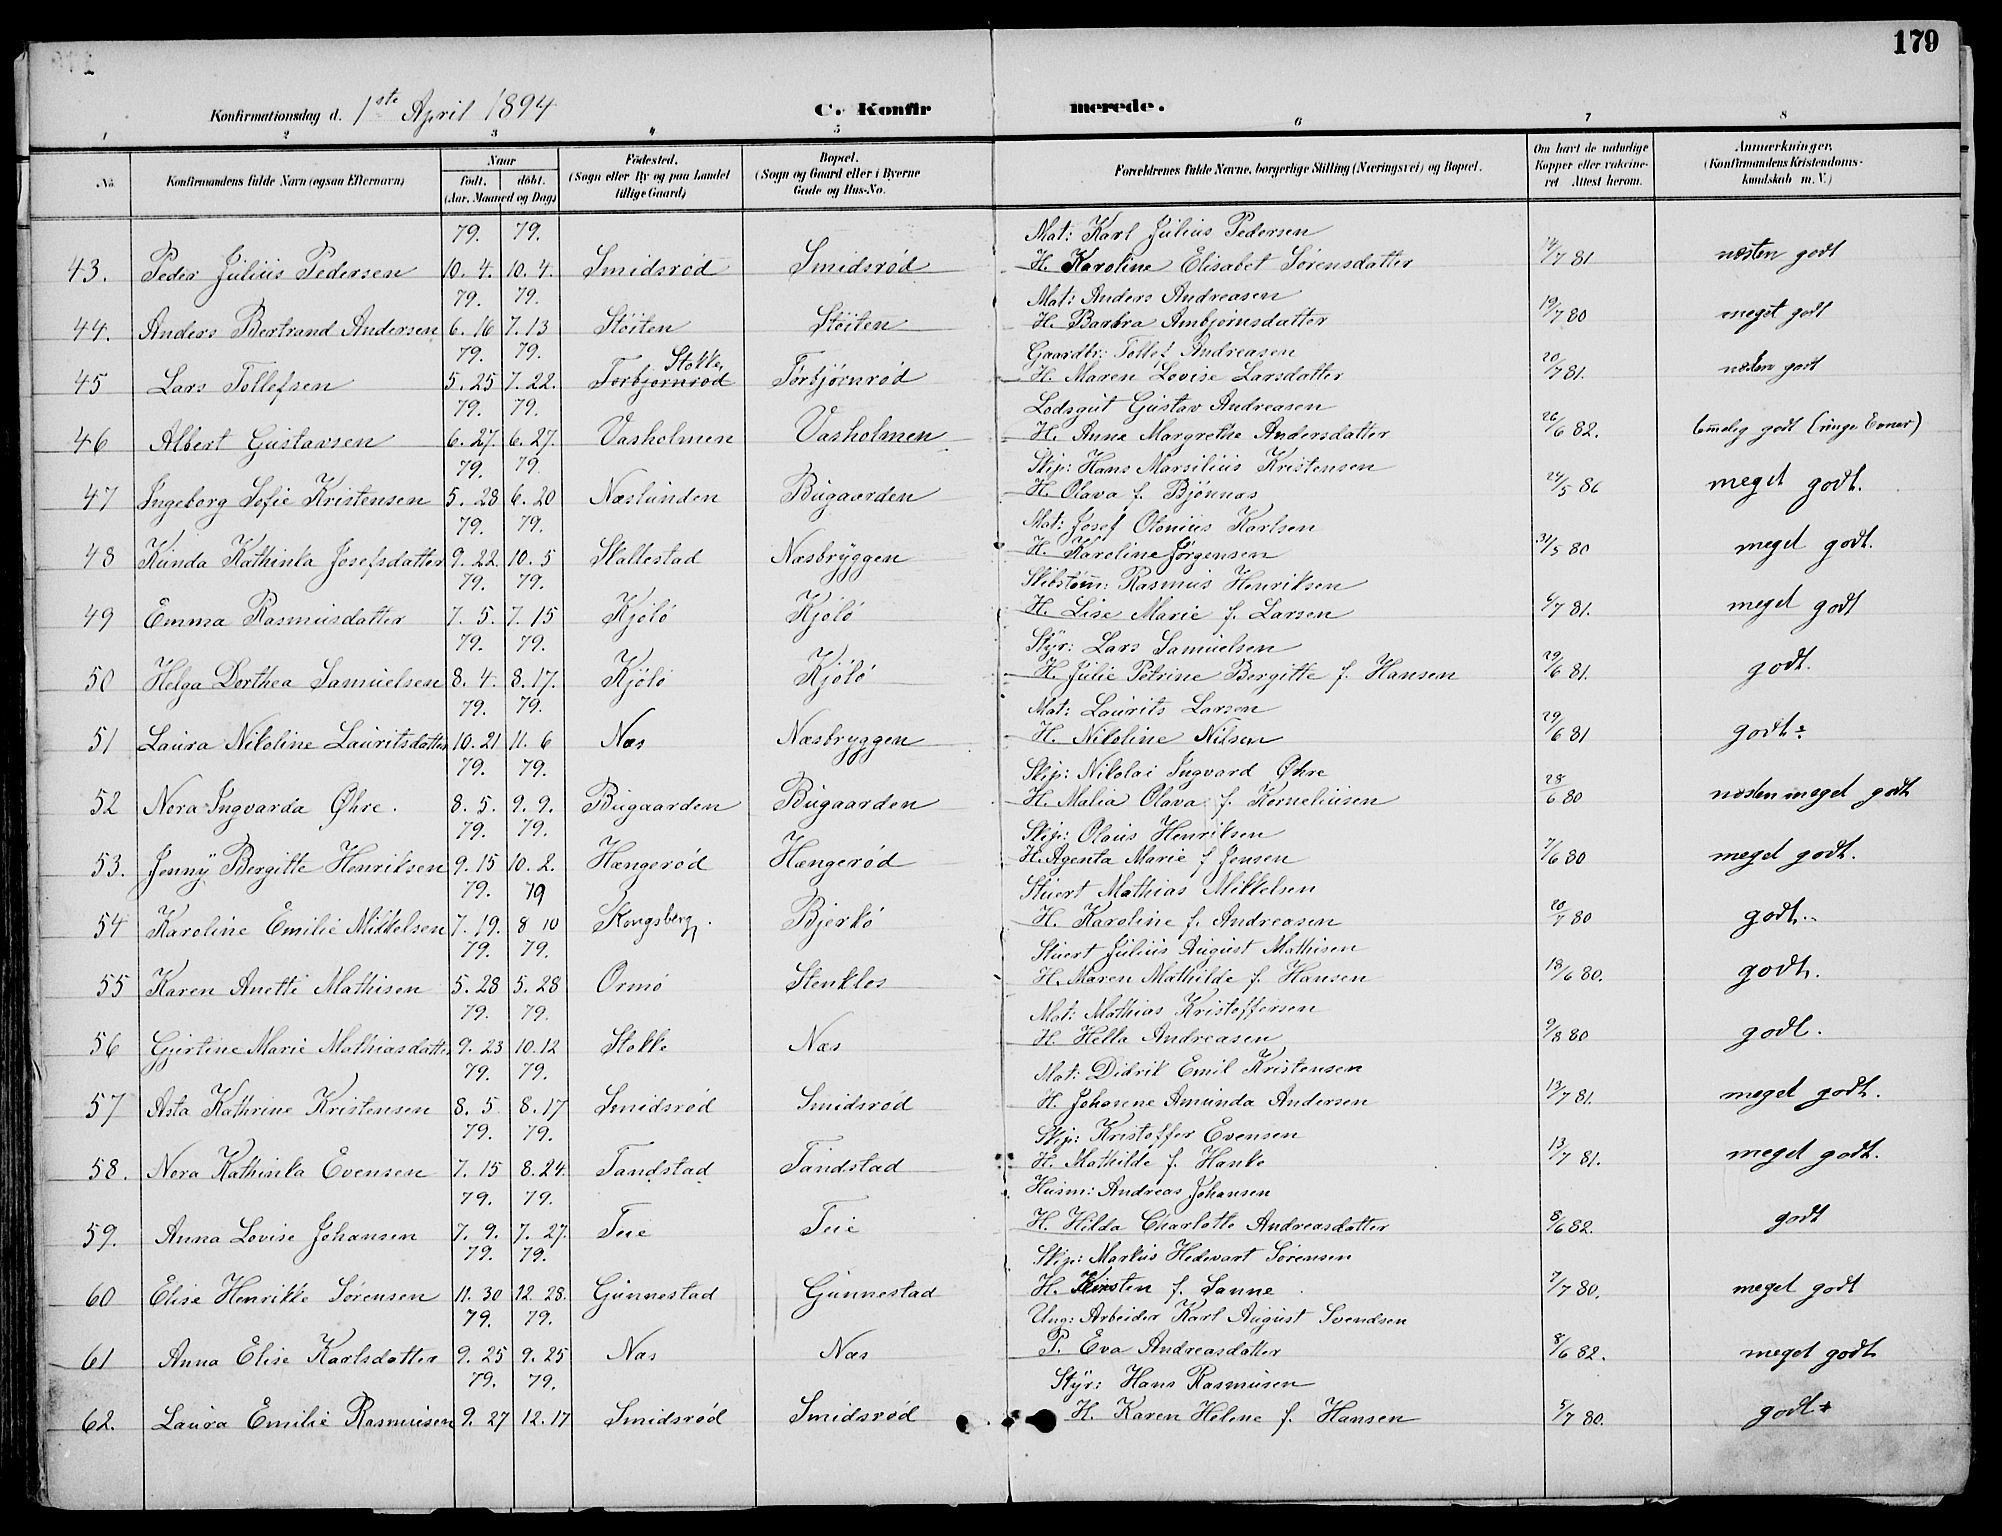 179
Konfirmationsdag d. 1ste April 1894 C. Konfirmerede.
1 2 3 4 5 6 7 8
No. Konfirmandens fulde Navn (ogsaa Efternavn) Naar født. døbt. (Aar, Maaned og Dag) Fødested. (Sogn eller By og paa Landet tillige Gaard) Bopæl. (Sogn og Gaard eller i Byerne Gade og Hus-No. Forældrenes fulde Navne, borgerlige Stilling (Næringsvei) og Bopæl. Om havt de naturlige Kopper eller vakcineret Attest herom. Anmærkninger. (Konfirmandens Kristendomskundskab m. V.)
79. 79. Mat: Karl Julius Pedersen
43. Peder Julius Pedersen 10. 4. 10. 4. Smidsrød Smidsrød H. Karoline Elisabet Sørensdatter 14/7 81 næsten godt
79. 79. Mat: Anders Andreasen
44. Anders Bertrand Andersen 6. 16 7. 13 Støiten Støiten H. Barbra Ambjørnsdatter 19/7 80 meget godt
79. 79. Stokke Gaardbr: Tollef Andreasen
45 Lars Tollefsen 5. 25 7. 22. Torbjørnrød Torbjørnrød H. Maren Lovise Larsdatter 20/7 81. næsten godt
79. 79. Lodsgut Gustav Andreasen
46 Albert Gustavsen 6. 27. 6. 27. Vasholmen Vasholmen H. Anne Margrethe Andersdatter 26/6 82. temmelig godt (ringe Evner)
79. 79. Skip: Hans Marsilius Kristensen
47 Ingeborg Sofie Kristensen 5. 28 6. 20 Næslunden Bugaarden H. Olava f. Bjønnæs 24/5 86 meget godt.
79. 79. Mat: Josef Olonius Karlsen
48 Kunda Kathinka Josefsdatter 9. 22. 10. 5 Skallestad Næsbryggen H. Karoline Jørgensen 31/5 80 meget godt.
79. 79. Skibstøm: Rasmus Henriksen
49 Emma Rasmusdatter 7. 5. 7. 15 KjøLø Kjølø H. Lise Marie f. Larsen 6/7 81. meget godt
79. 79. Styr: Lars Samuelsen
50 Helga Dorthea Samuelsen 8. 4. 8. 17. Kjølø Kjølø H. Julie Petrine Bergitte f. Hansen 29/6 81. godt.
79. 79. Mat: Laurits Larsen
51 Laura Nikoline Lauritsdatter 10. 21 11. 6 Næs Næsbryggen H. Nikoline Nilsen 29/6 81 godt
79. 79. Skip: Nikolai Ingvard Øhre
52 Nora Ingvarda Øhre. 8. 5. 9. 9. Bugaarden Bugaarden H. Malia Olava f. Korneliusen 28/6 80 næsten meget godt
79. 79. Skip: Olaus Henriksen
53. Jenny Bergitte Henriksen 9. 15 10. 2. Hængerød Hængerød H. Agenta Marie f Jensen 7/6 80 meget godt.
79. 79 Stuert Mathias Mikkelsen
54 Karoline Emilie Mikkelsen 7. 19. 8 10 Kongsberg. Bjerkø H. Karoline f. Andreasen 20/7 80 godt.
79. 79. Stuert Julius August Mathisen
55 Karen Anetti Mathisen 5. 28 5. 28 Ormø Stenkløs H. Maren Mathilde f. Hansen 18/6 80. godt.
79. 79. Mat: Mathias Kristoffersen
56 Gjertine Marie Mathiasdatter 9. 23 10. 12 Stokke Næs H. Hella Andreasen 9/8 80 godt.
79. 79. Mat: Didrik Emil Kristensen
57 Asta Kathrine Kristensen 8. 5 8. 17 Smidsrød Smidsrød H. Johanne Amunda Andersen 13/7 81. meget godt.
79. 79. Skip: Kristoffer Evensen
58. Nora Kathinka Evensen 7. 15 8. 24. Tandstad Tandstad H. Mathilde f. Hanke 13/7 81. meget godt.
79. 79. Husm: Andreas Johansen
59. Anna Lovise Johansen 7. 9. 7. 27. Teie Teie H. Hilda Charlotte Andreasdatter 8/6 82. godt
79. 79. Skip: Markus Hedevart Sørensen
60 Elise Henrikke Sørensen 11. 30 12. 28. Gunnestad Gunnestad H. Kirsten f. Sanne 7/7 80. meget godt
79. 79. Ung: Arbeider Karl August Svendsen
61 Anna Elise Karlsdatter 9. 25 9. 25 Næs Næs P. Eva Andreasdatter 8/6 82. meget godt
79. 79. Styr: Hans Rasmusen
62. Laura Emilie Rasmusen 9. 27 12. 17 Smidsrød Smidsrød H. Karen Helene f. Hansen 5/7 80. godt +